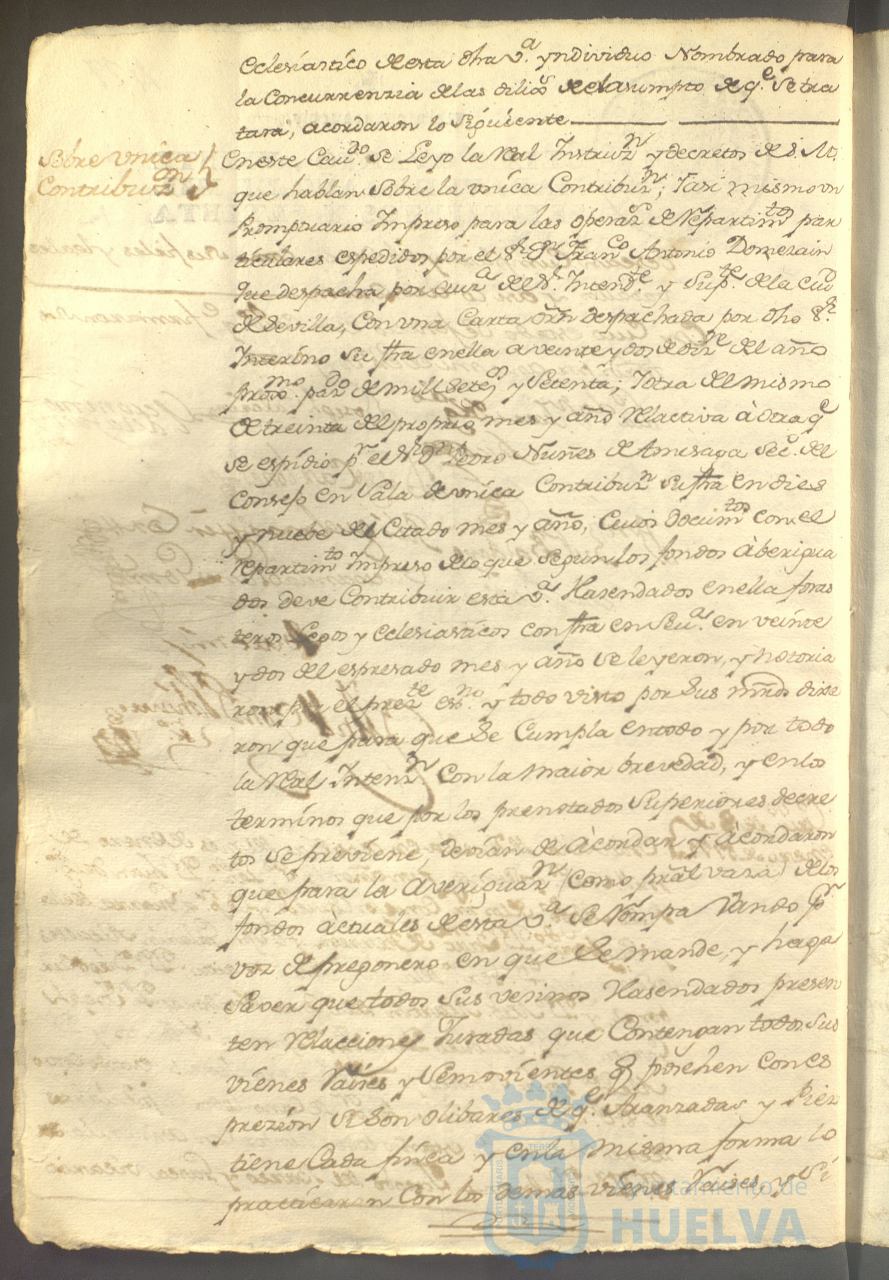 Eclesiástico de esta dha v.ª yndividuo Nombrado para
la Concurrenzia de las dilig.s del asumpto de q.e se tra
tara; acordaron lo siguiente
Sobre vnica
Contribuz.on
En este Cau.do se Leyo la Real Instruz.n y decretos de S. M.
que hablan sobre la vnica Contribuz.n; Y asi mismo vn
Promptuario Impreso para las operaz.s de Repartim.tos par
ticulares espedidos por el S.r D.n Fran.co Antonio Domezain
que despacha por aus.a del S.r Intend.te y Sup.te de la ciu.d
de Sevilla, Con vna Carta orn despachada por dho S.r
Interino su fha en ella a veinte y dos de diz.re del año
proxº. pas.do de mill sete.s y setenta; Y otra del mismo
de treinta del proprio mes y año Relactiva à otra q.e
se espidio p.r el S.r D.n Pedro Nuñes de Amesaga Sec.º del
Consejo en Sala de vnica Contribuz.n su fha en dies
y nuebe del Citado mes y año, Cuios docum.tos con el
repartim.to Impreso de lo que segun los fondos àberigua
dos deve Contribuir esta v.ª Hasendados en ella foras
teros Legos y eclesiasticos con fha en Seu.ª en veinte
y dos del espresado mes y año se leyeron, y notoria
ron por el prez.te es.no y todo visto por Sus mrds dixe
ron que para que Se Cumpla en todo y por todo
la Real Intenz.n con la maior brevedad, y en los
terminos que por los prenotados Superiores decre
tos se previene, devian de Acordar y Acordaron
que para la Averiguaz.n (como pral vaza) de los
fondos àctuales de esta v.ª Se Rompa Vando p.r
voz de pregonero en que Se mande, y haga
Saver que todos sus vesinos Hasendados presen
ten Relacciones Juradas que Contengan todos sus
vienes Raises y Semovientes q.e posehen con es
prezión si son olibares de q.e Aranzadas y Piez
tiene Cada finca y en la misma forma lo
practicaran Con los demas vienes Raises, y si
Ayuntamiento de
HUELVA